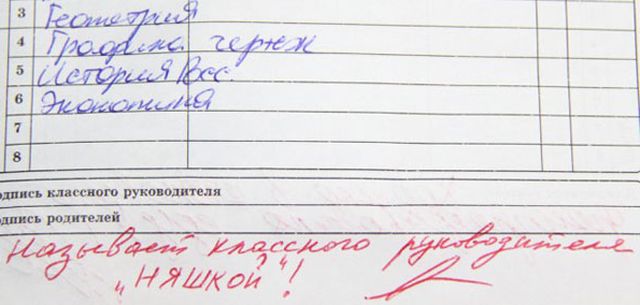 3 Геометрия
4 Графика чертеж
5 История Росс.
6 Экономика
7
8
одпись классного руководителя
одпись родителей
Называет классного руководителя
„НЯШКОЙ“!